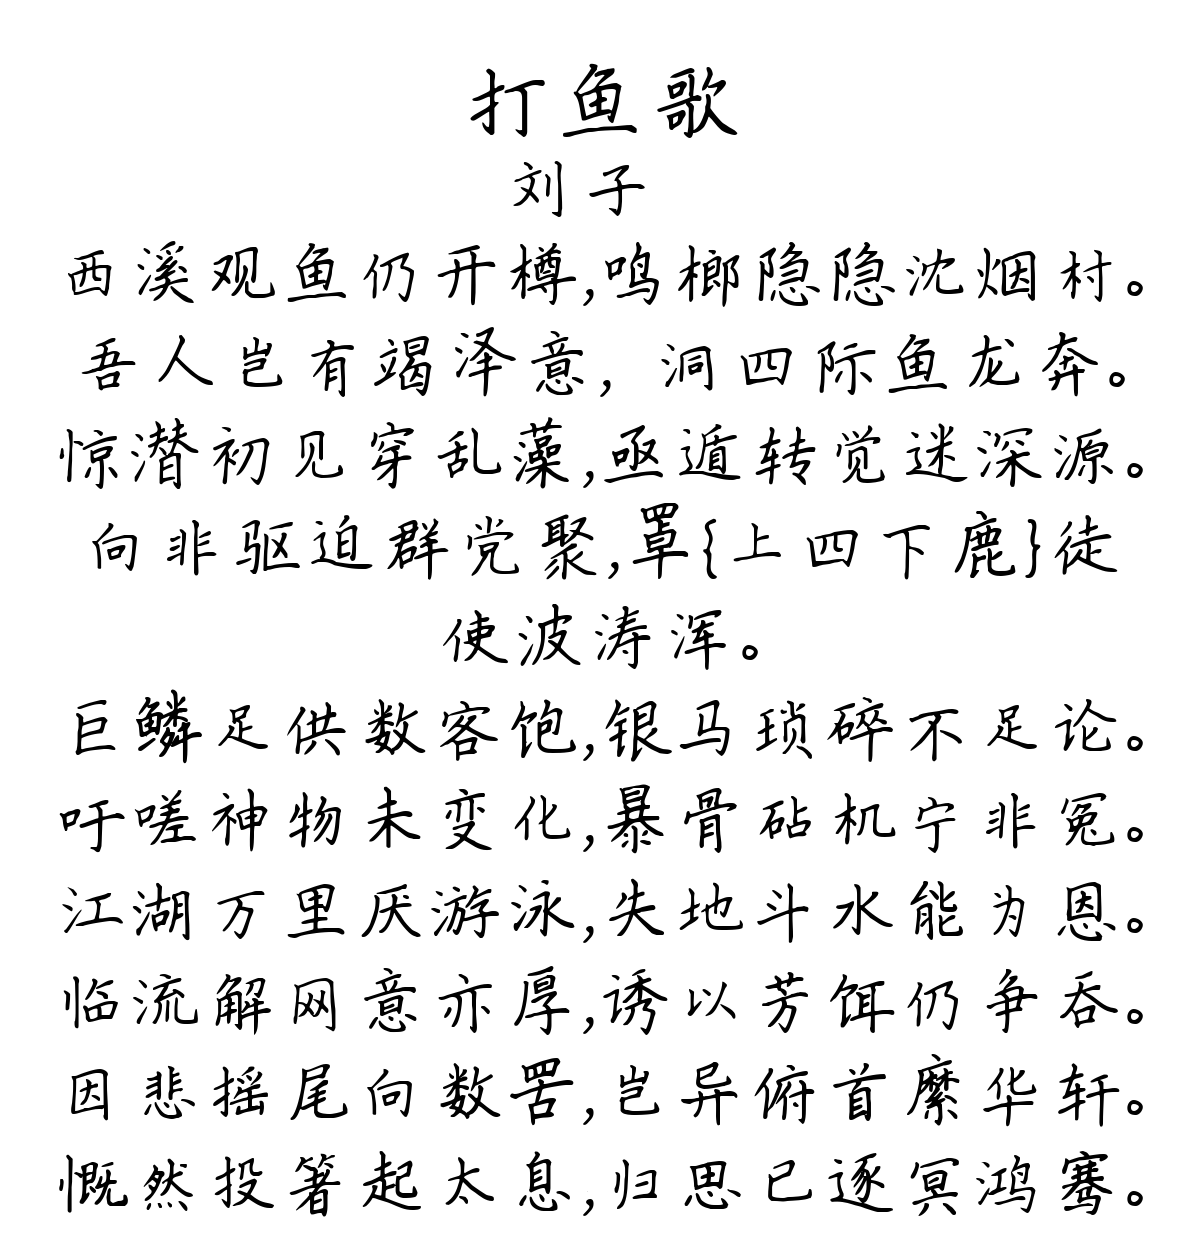 打鱼歌
刘子
西溪观鱼仍开樽,鸣榔隐隐沈烟村。
吾人岂有竭泽意,洞四际鱼龙奔。
惊潜初见穿乱藻,亟遁转觉迷深源。
向非驱迫群党聚,罩{上四下鹿}徒
使波涛浑。
巨鳞足供数客饱,银马琐碎不足论。
吁嗟神物未变化,暴骨砧机宁非冤。
江湖万里厌游泳,失地斗水能为恩。
临流解网意亦厚,诱以芳饵仍争吞。
因悲摇尾向数罟,岂异俯首縻华轩。
慨然投箸起太息,归思已逐冥鸿骞。